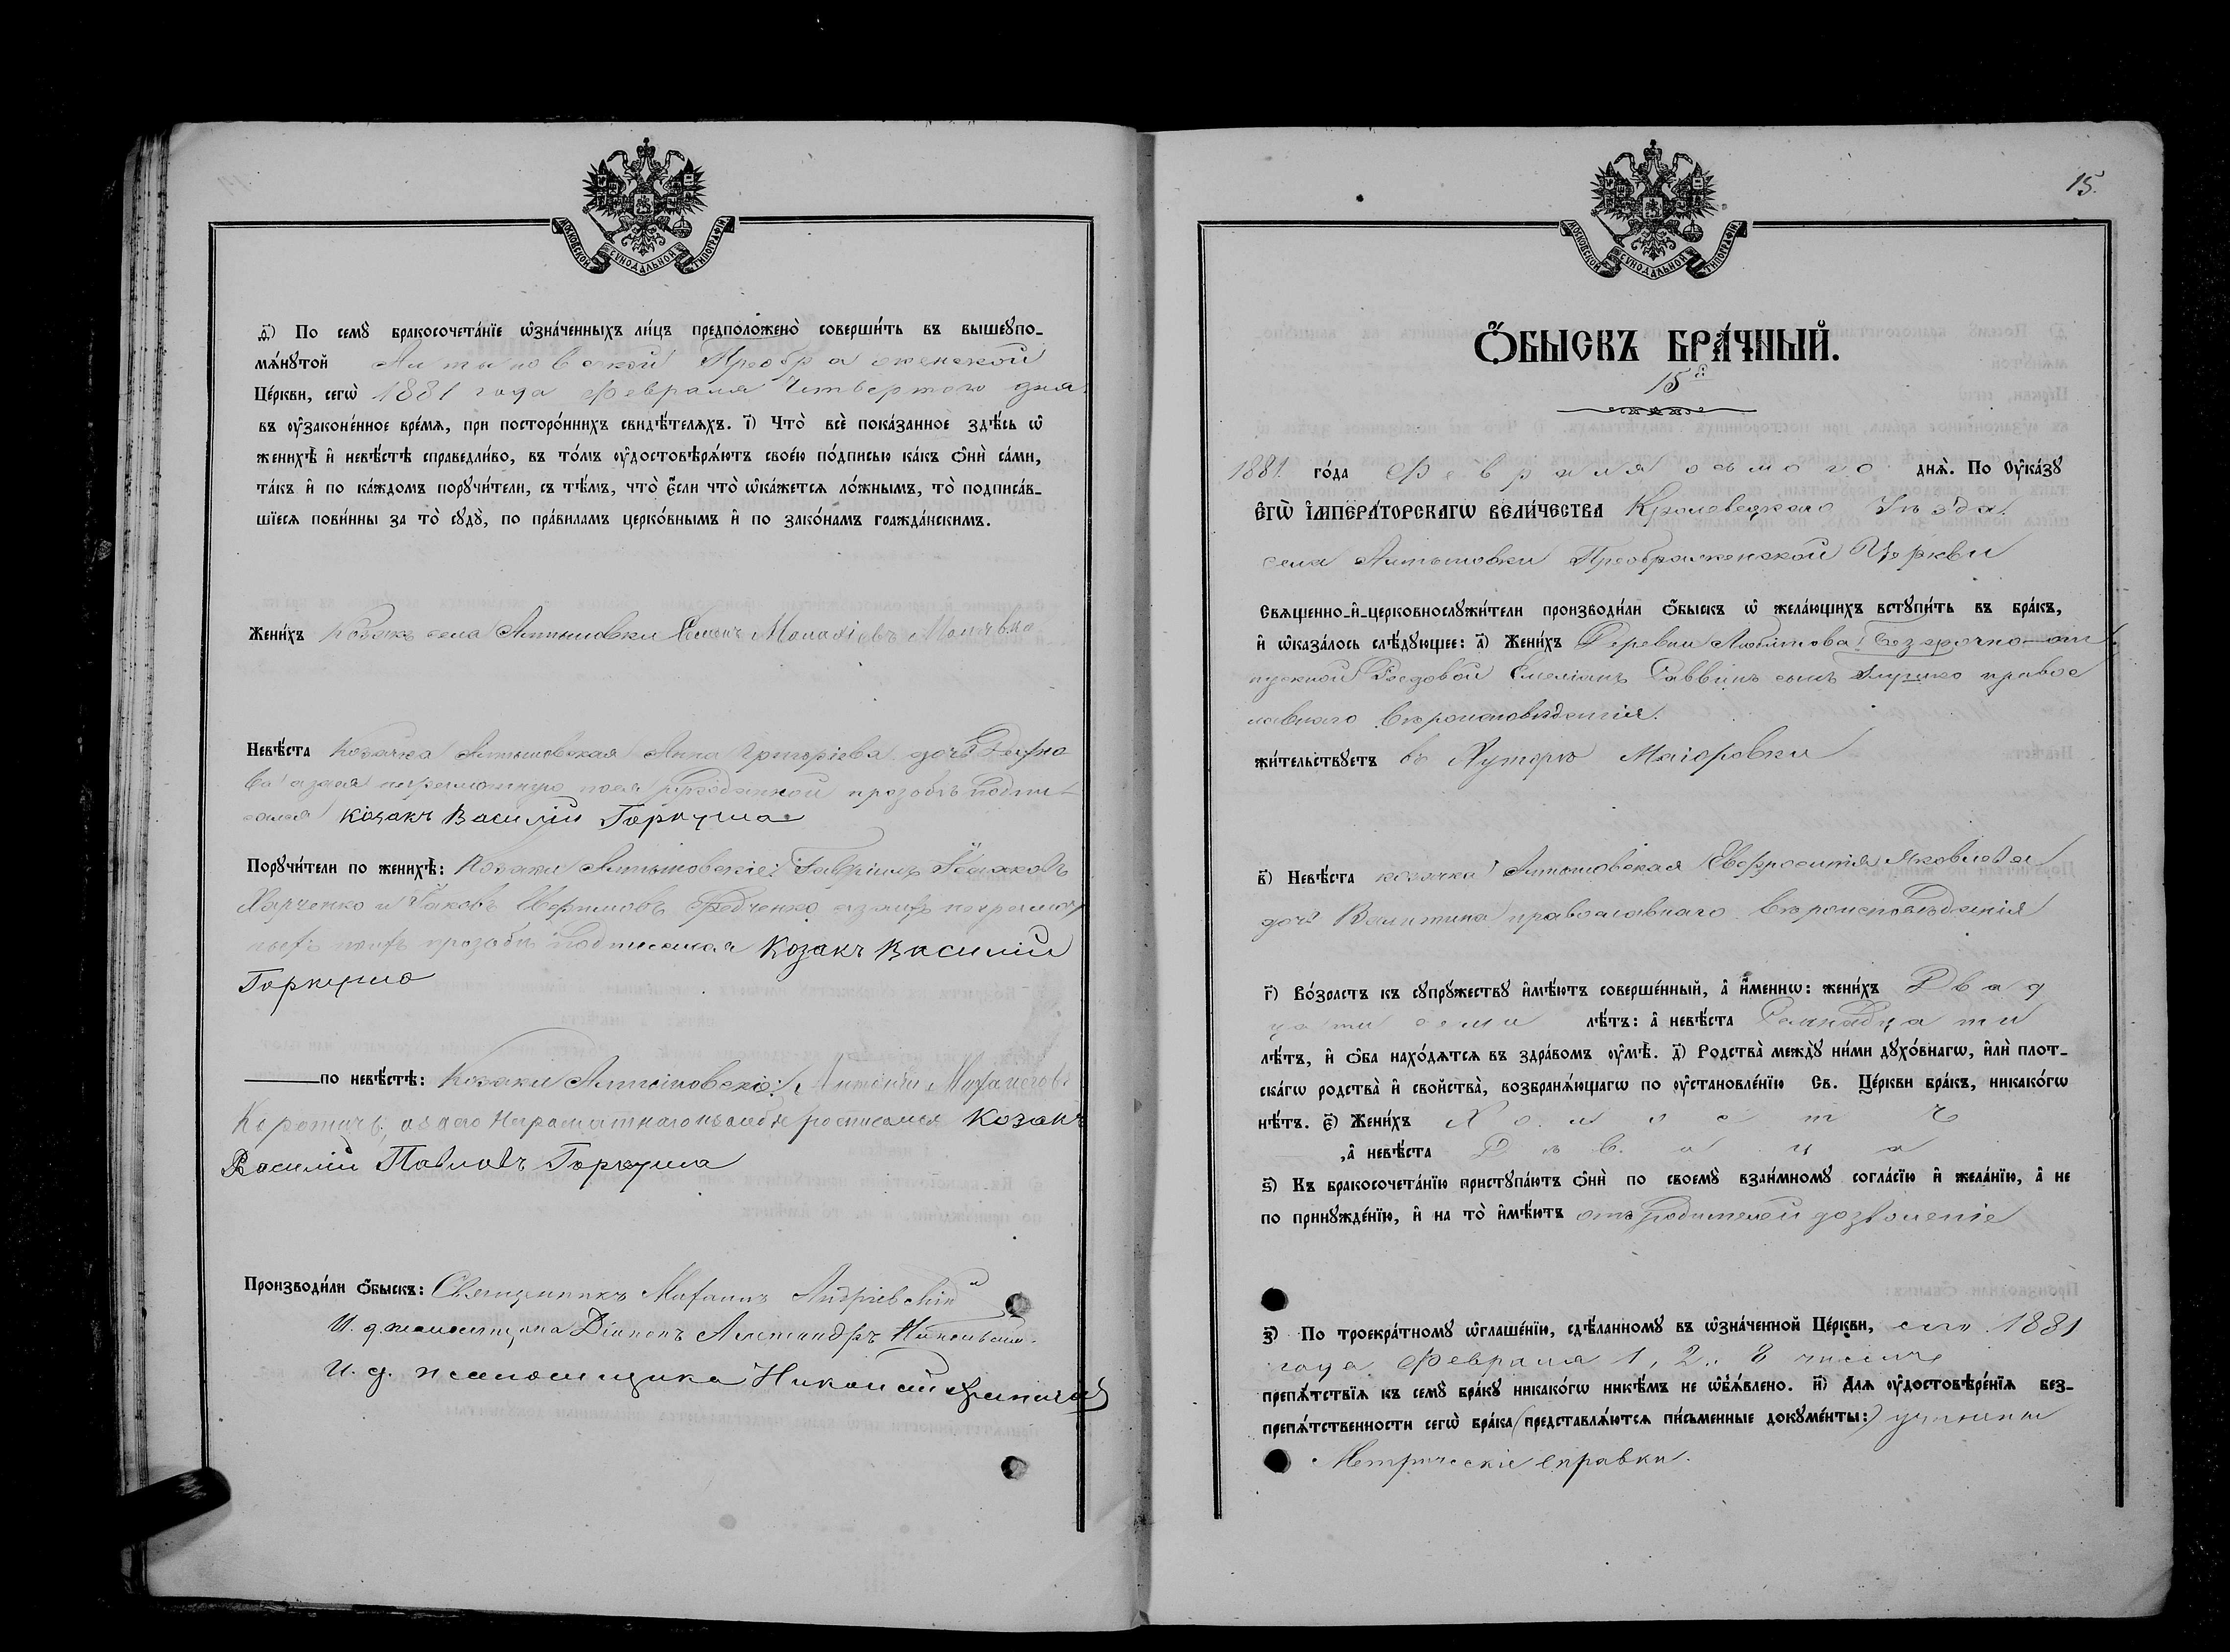 МОСКОВСКОЙ СѴНОДАЛЬНОЙ ТИПОГРАФІИ
д҃) По семꙋ̀ бракосочета́нїе ѡ҆зна́ченныхъ ли́цъ предположено̀ соверши́ть въ вышеꙋпо-
мѧ́нꙋтой Алтыновской Преображенской
Це́ркви, сегѡ̀ 1881 года Февраля Четвертого дня
въ ᲂу҆законе́нное вре́мѧ, при посторо́ннихъ свидѣ́телѧхъ. і҃) Что̀ всѐ пока́занное здѣ́сь ѡ҆
женихѣ̀ и҆ невѣ́стѣ справедли́во, въ то́мъ ᲂу҆достовѣрѧ́ютъ своє́ю по́дписью ка́къ ѻ҆нѝ са́ми,
та́къ и҆ по ка́ждомъ порꙋчи́тели, съ тѣ́мъ, что̀ є҆́сли что̀ ѡ҆ка́жетсѧ ло́жнымъ, то̀ подписа́в-
шїесѧ пови́нны за то̀ сꙋдꙋ̀, по пра́виламъ церко́внымъ и҆ по зако́намъ гражда́нскимъ.
Жени́хъ Козакъ села Алтыновки Семенъ Малахіевъ
Невѣ́ста Козачка Алтыновская Анна Григоріева дочь
козакъ Василій Горкуша
Порꙋчи́тели по женихѣ̀: Козаки Алтыновскіе: Гавріилъ
Харченко и Яковъ Федченко
подписался Козакъ Василій
Горкуша
по невѣ́стѣ: Козаки Алтыновскіе: Антоній
росписался Козакъ
Василій Павловъ Горкуша
Производи́ли ѻ҆́быскъ: Священникъ Андріевскій
И. д. псаломщика Діаконъ Александръ
И. д. псаломщика Николай
15.
МОСКОВСКОЙ СѴНОДАЛЬНОЙ ТИПОГРАФІИ
Ѻ҆́БЫСКЪ БРА́ЧНЫЙ.
15й
1881 го́да Февраля осьмого днѧ̀. По ᲂу҆ка́зꙋ
є҆гѡ̀ і҆мпера́торскагѡ вели́чества Кролевецкаго Уѣзда
села Алтыновки Преображенской Церкви
Свѧщенно-и҆-церковнослꙋжи́тели производи́ли ѻ҆́быскъ ѡ҆ жела́ющихъ встꙋпи́ть въ бра́къ,
и҆ ѡ҆каза́лось слѣ́дꙋющее: а҃) Жени́хъ Деревни Любитова безсрочно-от
пускной Рядовой Емеліанъ Саввинъ сынъ Глушко правос
лавнаго вѣроисповѣданія.
жи́тельствꙋетъ въ Хуторѣ Маіоровки
в҃) Невѣ́ста козачка Алтыновская Евфросинія Яковлева
дочь православнаго вѣроисповѣданія
г҃) Во́зрастъ къ сꙋпрꙋ́жествꙋ и҆мѣ́ютъ соверше́нный, а҆ и҆́меннѡ: жени́хъ Двад
цати семи лѣ́тъ: а҆ невѣ́ста Семнадцати
лѣ́тъ, и҆ ѻ҆́ба нахо́дѧтсѧ въ здра́вомъ ᲂу҆мѣ̀. д҃) Родства̀ междꙋ̀ ни́ми дꙋхо́внагѡ, и҆лѝ плот-
ска́гѡ родства̀ и҆ свойства̀, возбранѧ́ющагѡ по ᲂу҆становле́нїю Св. Це́ркви бра́къ, никако́гѡ
нѣ́тъ. є҃) Жени́хъ Холостъ
,а҆ невѣ́ста Дѣвица
ѕ҃) Къ бракосочета́нїю пристꙋпа́ютъ ѻ҆нѝ по своемꙋ̀ взаи́мномꙋ согла́сїю и҆ жела́нїю, а҆ не
по принꙋжде́нїю, и҆ на то̀ и҆мѣ́ютъ отъ родителей дозволеніе
з҃) По троекра́тномꙋ ѡ҆глаше́нїю, сдѣ́ланномꙋ въ ѡ҆зна́ченной Це́ркви, сего 1881
года Февраля 1, 2, 8 числъ
препѧ́тствїѧ къ семꙋ̀ бра́кꙋ никако́гѡ никѣ́мъ не ѡ҆б̾ѧ́влено. и҃) Длѧ ᲂу҆достовѣре́нїѧ без-
препѧ́тственности сегѡ̀ бра́ка (представлѧ́ютсѧ пи́сьменные докꙋме́нты:) учинены
Метрическіе справки.